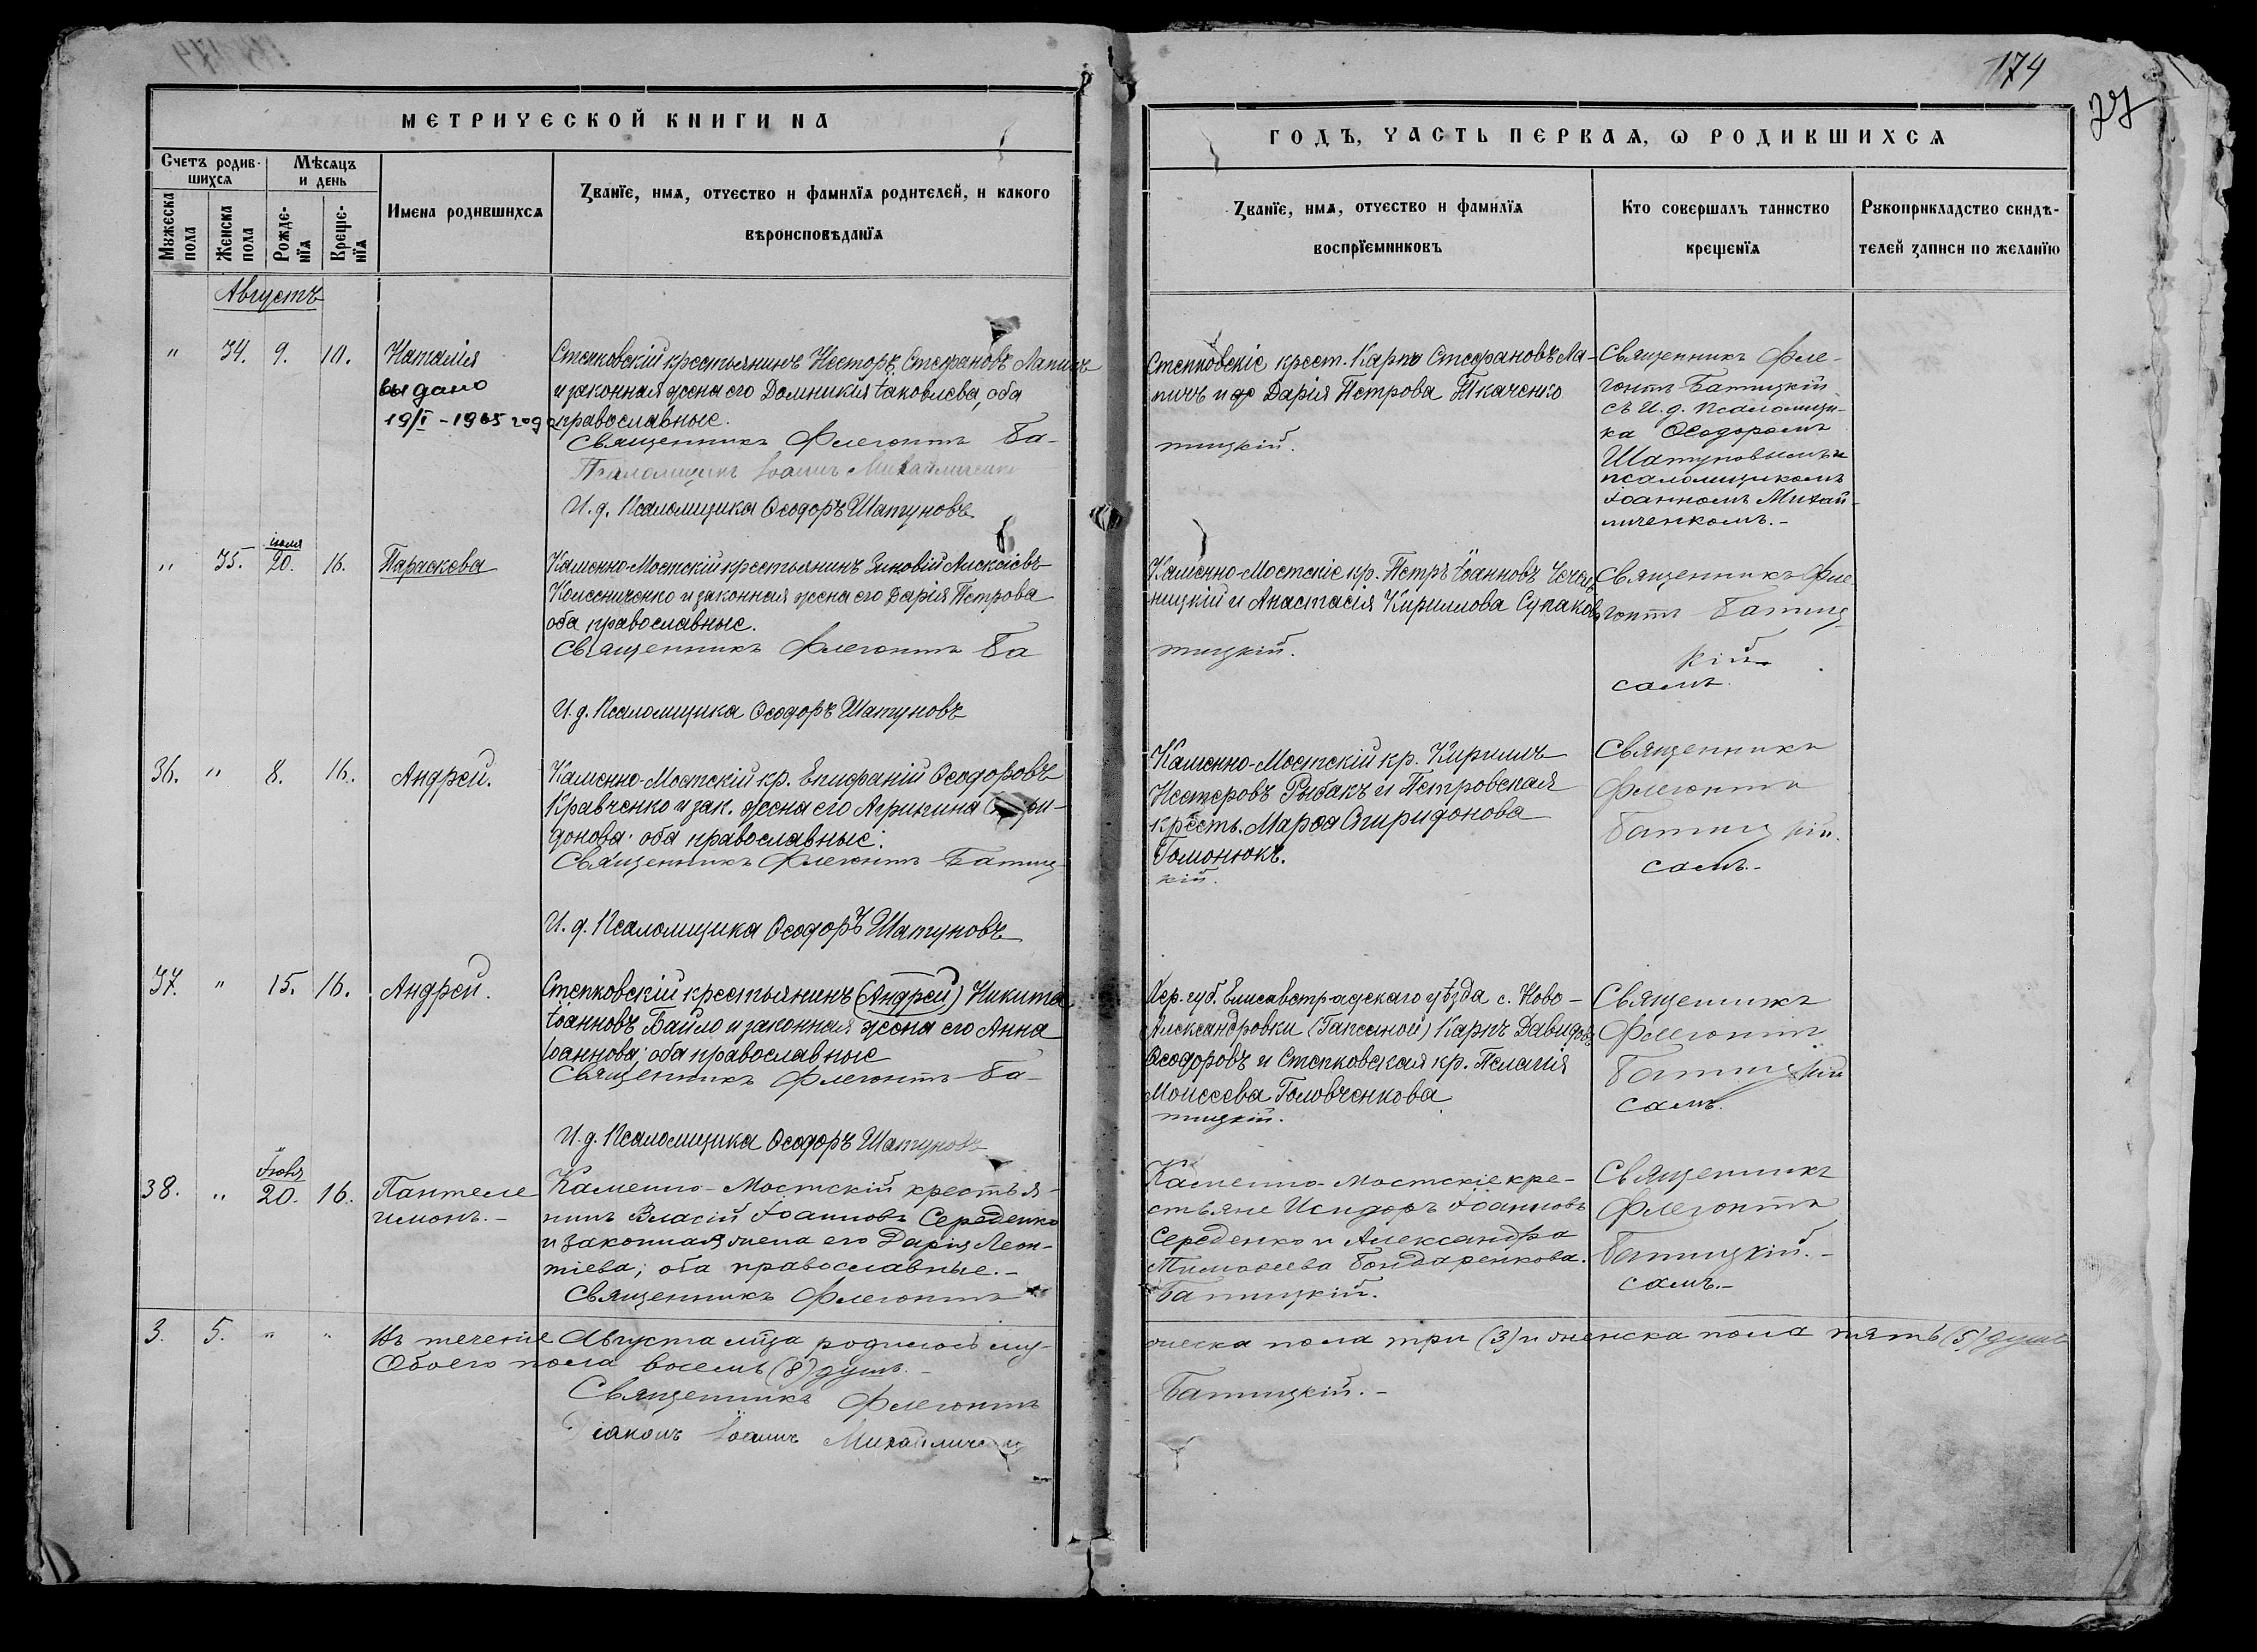 174
27
МЕТРИЧЕСКОЙ КНИГИ НА
ГОДЪ, ЧАСТЬ ПЕРВАѦ, Ѡ РОДИВШИХСѦ
Счетъ родив-
шихсѧ
Мѣсѧцъ
и день
Мужеска
пола
Женска
пола
Рожде-
нїѧ
Креще-
нїѧ
Имена родившихсѧ
Званїе, имѧ, отчество и фамилїѧ родителей, и какого
вѣроисповѣданїѧ
Званїе, имѧ, отчество и фамилїѧ
воспрїемниковъ
Кто совершалъ таинство
крещенїѧ
Рукоприкладство свидѣ-
телей записи по желанїю
Августъ
" 34. 9. 10.
Наталія
выдано
19/I - 1965 года
Степковскій крестьянинъ Несторъ Стефановъ Лапичъ
и законная жена его Домникія Іаковлева, оба
православные.
Священникъ Флегонтъ Ба-
тицкій.
Псаломщикъ Іоаннъ Михайличенко
И. д. Псаломщика Ѳеодоръ Шатуновъ
Степковскіе крест. Карпъ Стефановъ Ла-
пичъ и Дарія Петрова Ткаченко
Священникъ Фле-
гонтъ Батицкій
съ И. д. Псаломщи-
ка Ѳеодоромъ
Шатуновымъ и
псаломщикомъ
Іоанномъ Михай-
личенкомъ.-
" 35. іюля 20. 16.
Параскева
Каменно-Мостскій крестьянинъ Зиновій Алексіевъ
Колесниченко и законная жена его Дарія Петрова
оба православные.
Священникъ Флегонтъ Ба
тицкій.
И. д. Псаломщика Ѳеодоръ Шатуновъ
Каменно-Мостскіе кр. Петръ Іоанновъ
ницкій и Анастасія Кириллова
Священникъ Фле
гонтъ Батиц
кій
самъ.
36. " 8. 16.
Андрей.
Каменно-Мостскій кр. Епифаній Ѳеодоровъ
Кравченко и зак. жена его Агрипина Спири-
донова; оба православные.
Священникъ Флегонтъ Батиц-
кій.
И. д. Псаломщика Ѳеодоръ Шатуновъ
Каменно-Мостскій кр. Кириллъ
Нестеровъ Рыбакъ и Петровская
кресть. Марѳа Спиридонова
Гомонюкъ.
Священникъ
Флегонтъ
Батицкій.
самъ.-
37. " 15. 16.
Андрей.
Степковскій крестьянинъ (Андрей) Никита
Іоанновъ Байло и законная жена его Анна
Іоаннова; оба православные
Священникъ Флегонтъ Ба-
тицкій.
И. д. Псаломщика Ѳеодоръ Шатуновъ
Хер. губ. Елисаветградскаго уѣзда с. Ново-
Александровки (Гапсиной) Карпъ Давидовъ
Ѳеодоровъ и Степковская кр. Пелагія
Моисеева Головченкова
Священникъ
Флегонтъ
Батицкій
самъ.
38. " Іюля 20. 16.
Пантеле
имонъ.-
Каменно-Мостскій крестья-
нинъ Власій Іоанновъ Середенко
и законная жена его Дарія Леон-
тіева; оба православные.-
Священникъ Флегонтъ
Батицкій.
Каменно-Мостскіе кре-
стьяне Исидоръ Іоанновъ
Середенко и Александра
Тимоѳеева Бондаренкова.
Священникъ
Флегонтъ
Батицкій.-
самъ.-
3. 5. " "
Въ теченіе Августа мѣца родилось му-
жеска пола три (3) и женска пола пять (5) душъ
Обоего пола восемь (8) душъ.-
Священникъ Флегонтъ
Батицкій.-
Діаконъ Іоаннъ Михайличенко